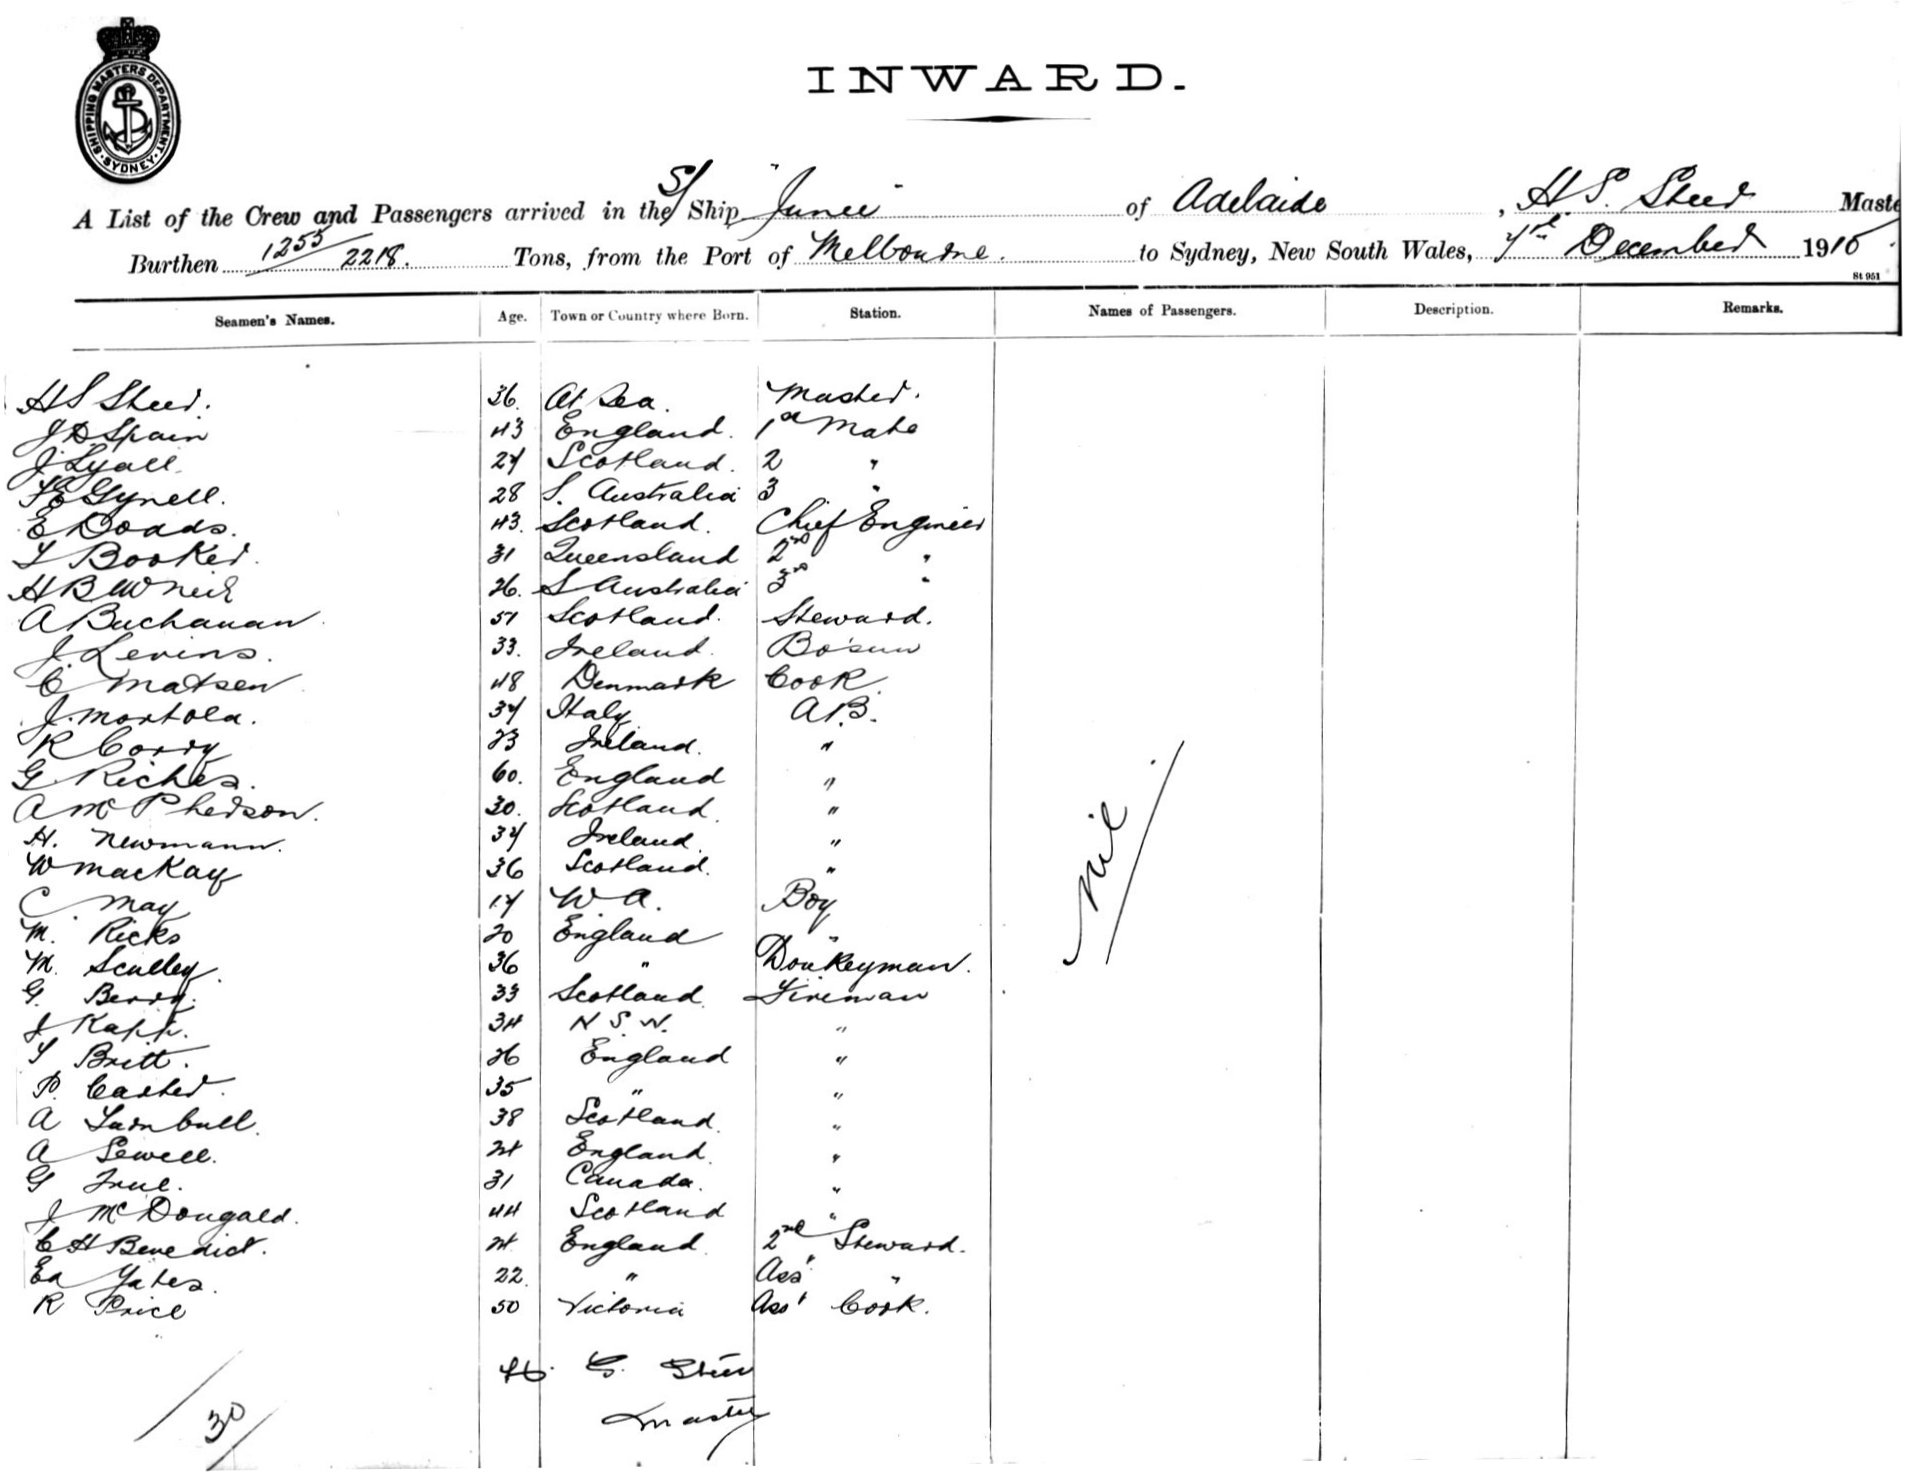 SHIPPING MASTERS DEPARTMENT · SYDNEY ·
INWARD.
A List of the Crew and Passengers arrived in the S/ Ship "Junee" of Adelaide, H S. Steer Maste
Burthen 1255/2218. Tons, from the Port of Melbourne. to Sydney, New South Wales, December 1910
St 951
Seamen's Names. Age. Town or Country where Born. Station. Names of Passengers. Description. Remarks.
H S Steer. 36. At Sea. Master.
J D Spain 43 England. 1st Mate
J Lyall 27 Scotland. 2 "
Gynell. 28 S. Australia 3 "
E Dodds. 43. Scotland. Chief Engineer
T Booker. 31 Queensland 2nd "
H B 26. S Australia 3rd "
A Buchanan 51 Scotland. Steward.
J. Levins. 33. Ireland. Bo'sun
C Matsen 48 Denmark Cook.
J. Mortola. 37 Italy A.B.
R Corry 23 Ireland. "
G Riches. 60. England "
A McPherson. 30. Scotland. "
H. Newmann. 37 Ireland. "
W Mackay 36 Scotland. "
C May 17 W A. Boy
M. Ricks 20 England "
M. Sculley. 36 " Donkeyman.
G. Berry. 33 Scotland. Fireman
J Kapp. 34 N S. W. "
T Britt. 26 England "
P. Carter. 35 " "
A Turnbull. 38 Scotland. "
A Sewell. 24 England. "
G True. 31 Canada. "
J McDougald. 44 Scotland "
C H Benedict. 24 England. 2nd Steward.
Ed Yates. 22. " Ass' "
R Price 50 Victoria Ass' Cook.
Nil
H. S. Steer
Master
30